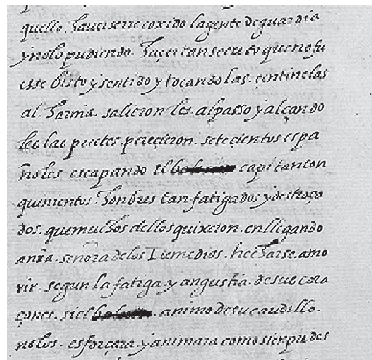 quello. hauiserecoxido lagente deguardia
ynolo pudiendo. hacer tan secreto que no fu
ese bisto y sentido y tocando las centinelas
al harma. salieron les alpasso y alçando
les las puentes. perecieron. setecientos espa
ñoles. escapando el capitan con
quinientos. hombres tan fatigados y destroça
dos. que muchos dellos quixeron. enllegando
a nra. señora delos Remedios. hecharse amo
rir. segun la fatiga. y angustia. desus cora
çones. si el animo desu caudillo
nolos. esforçara. y animara como siempre des